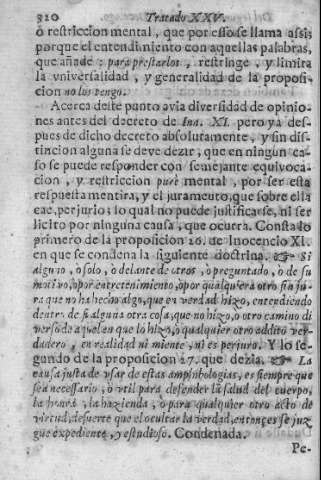 320 Tratado XXV.
ò restriccion mental, que por esso se llama assi;
porque el entendimiento con aquellas palabras,
que añade : para prestarlos, restringe, y limita
la vniversalidad, y generalidad de la proposi-
cion no los tengo.
Acerca deste punto avia diversidad de opinio-
nes antes del decreto de Inn. XI. pero ya des-
pues de dicho decreto absolutamente, y sin dis-
tincion alguna se deve dezir, que en ningun ca-
so se puede responder con semejante equivoca-
cion, y restriccion purè mental, por ser esta
respuesta mentira, y el juramento, que sobre ella
cae, perjurio; lo qual no puede justificarse, ni ser
licito por ninguna causa, que ocurra. Consta lo
primero de la proposicion 26. de Inocencio XI.
en que se condena la siguiente doctrina. ☞ Si
alguno, o solo, o delante de otros, o preguntado, o de su
motivo, o por entretenimiento, o por qualquiera otro fin ju-
ra que no ha hecho algo, que en verdad hizo, entendiendo
dentro de si alguna otra cosa, que no hizo, o otro camino di-
verso de aquel en que lo hizo, o qualquier otro addito ver-
dadero, en realidad ni miente, ni es perjuro. Y lo se-
gundo de la proposicion 27. que dezia. ☞ La
causa justa de vsar de estas amphibologias, es siempre que
sea necessario, o vtil para defender la salud del cuerpo,
la honra, la hazienda, o para qualquier otro acto de
virtud, de suerte que el ocultar la verdad, entonces se juz
gue expediente, y estudioso. Condenada.
Pe-